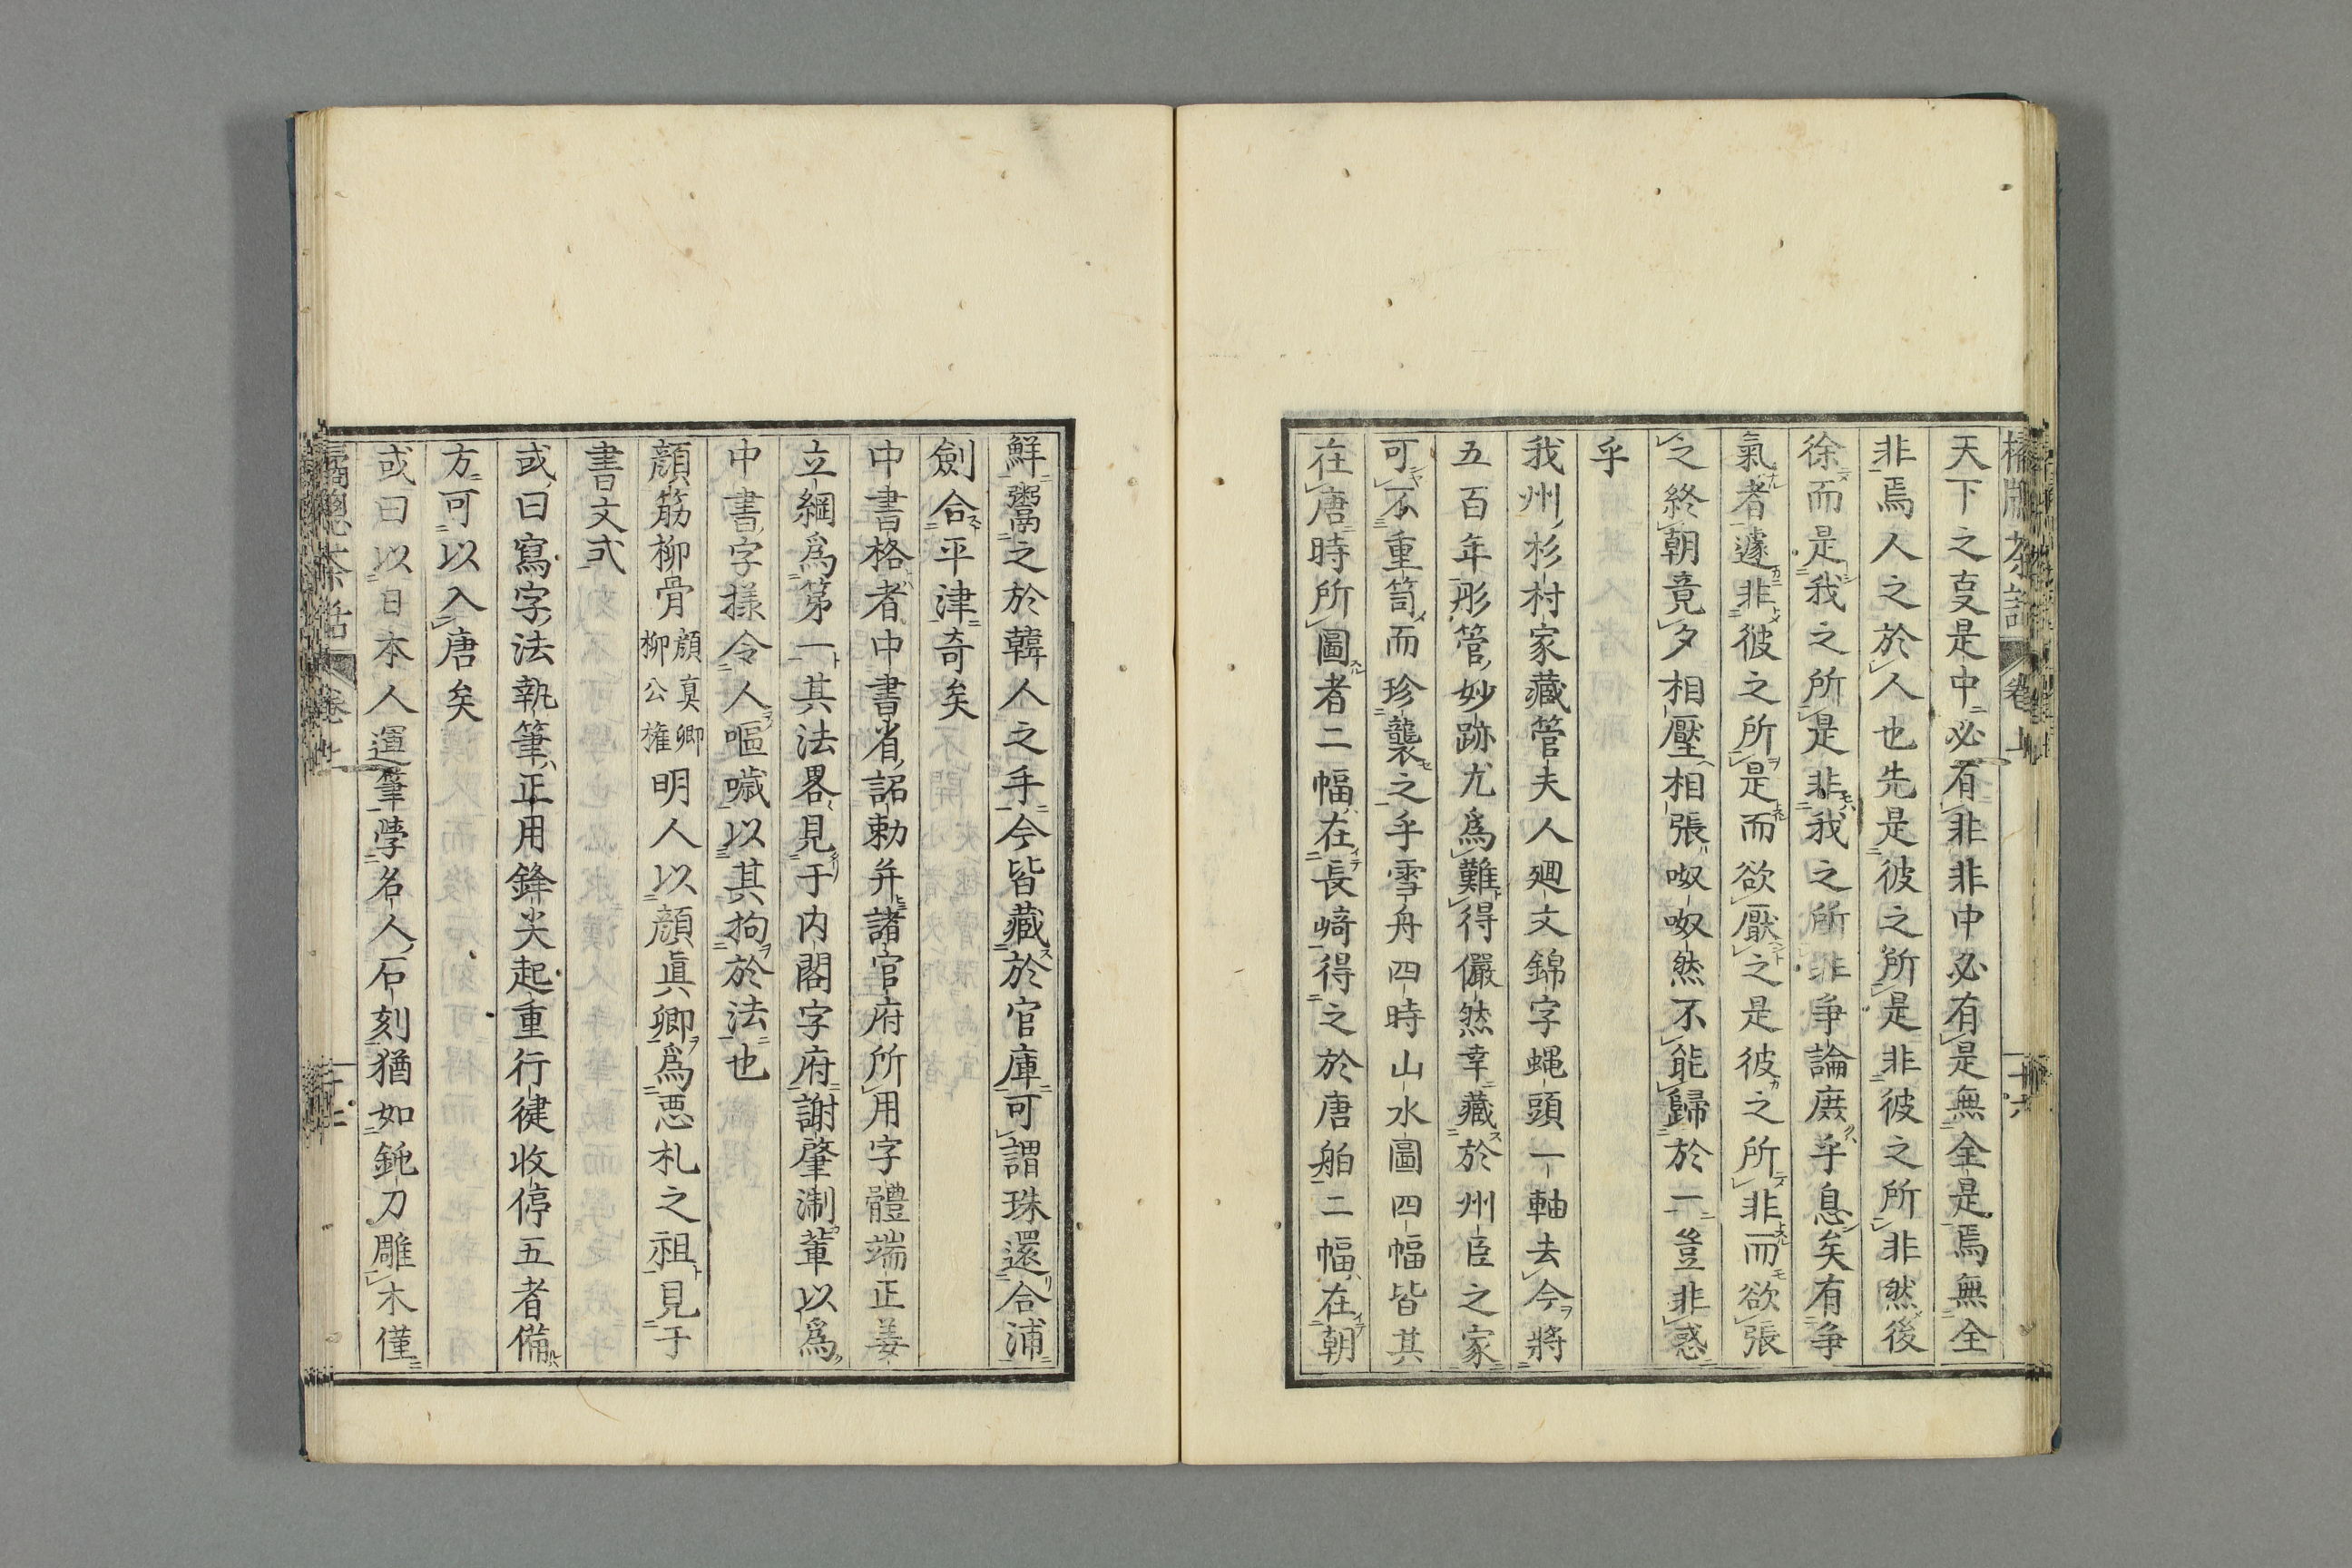 天下之㕝是中必有非非中必有是無全是焉無全
非焉人之於人也先是彼之所是非彼之所非然後
徐而是我之所是非我之所非争論庶乎息矣有争
氣者遽非彼之所是而欲壓之是彼之所非而欲張
之終朝竟夕相壓相張呶呶然不能歸於一豈非惑
乎
我州杉村家藏管夫人廻文錦字蝿頭一軸去今將
五百年彤管妙跡尤爲難得儼然幸藏於州臣之家
可不重笥而珍襲之乎雪舟四時山水圖四幅皆其
在唐時所圖者二幅在長崎得之於唐舶二幅在朝
鮮鬻之於韓人之手今皆藏於官庫可謂珠還合浦
劍合平津奇矣
中書格者中書省詔勅并諸官府所用字體端正姜
立綱爲第一其法畧見于内閣字府謝肇淛輩以爲
中書字樣令人嘔噦以其拘於法也
顔筋柳骨顔真卿柳公權明人以顔眞卿爲悪札之祖見于
書文式
或曰寫字法執筆正用鋒尖起重行健收停五者備
方可以入唐矣
或曰以日本人運筆學名人石刻猶如鈍刀雕木僅